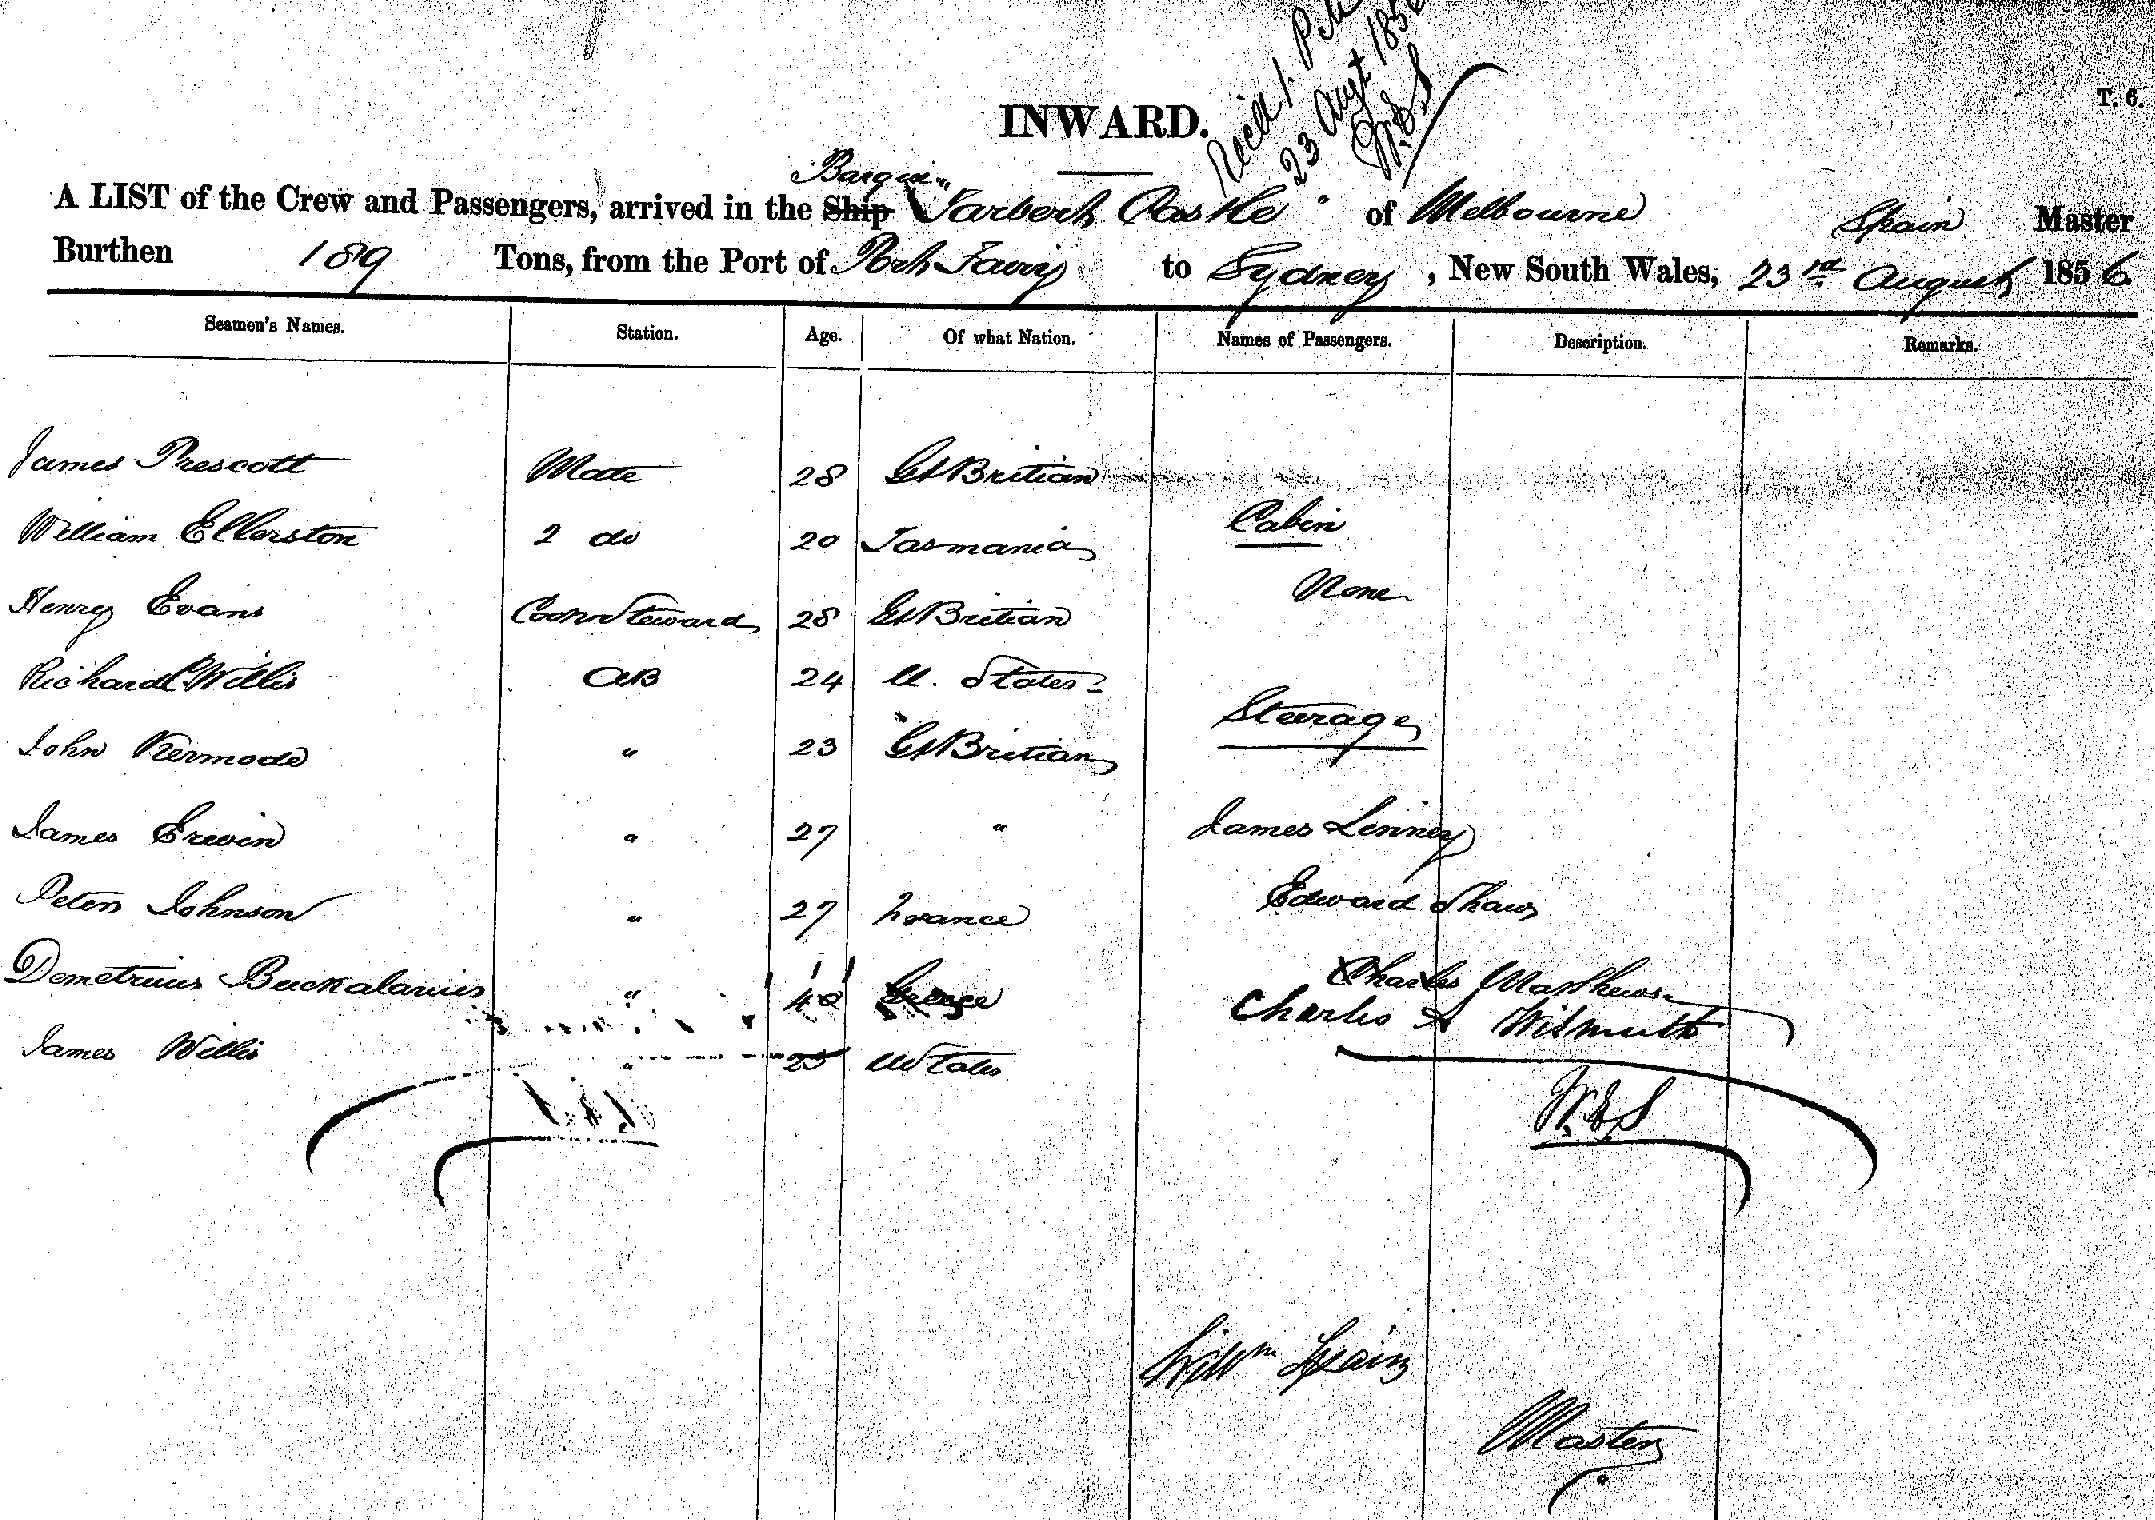 Rec'd 1. P.M
23 Augt 1856
W.S.S
INWARD.
T. 6.
Barque
A LIST of the Crew and Passengers, arrived in the Ship "Tarbert Castle" of Melbourne Spain Master
Burthen 189 Tons, from the Port of Port Fairy to Sydney, New South Wales, 23rd August 1856.
Seamen's Names. Station. Age. Of what Nation. Names of Passengers. Description. Remarks.
James Prescott Mate 28 Gt Britian
William Ellerston 2 do 20 Tasmania Cabin
Henry Evans Cook & Steward 28 Gt Britian None
Richard Willis AB 24 U. States
Steerage
John Kermode " 23 Gt Britian
James Erwin " 27 " James Linney
Peter Johnson " 27 France Edward Shaw
Demetrius Buckalarius " 40 Greece Charles Matthews
Charles A Wilmuth
James Willis " 25 U States
Willm Spain
Master